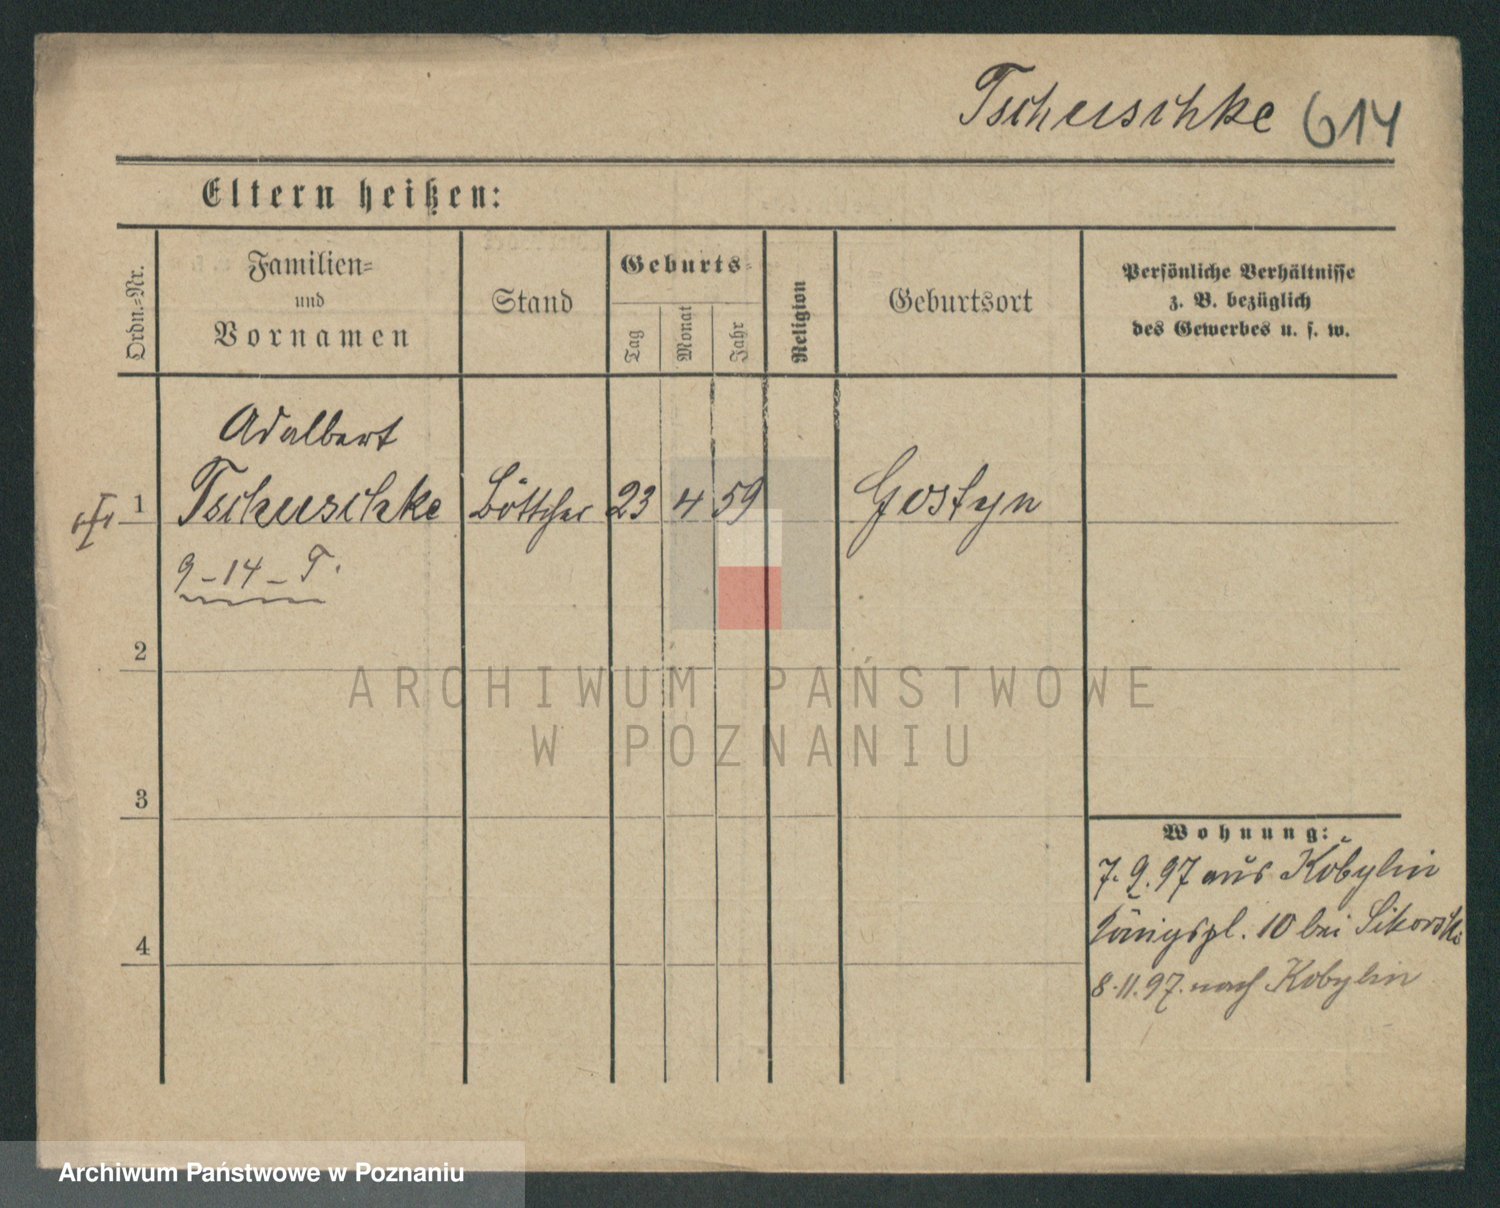 Tschuschke 614
Eltern heißen:
Ordn.-Nr.
Familien-
und
Vornamen
Stand
Geburts-
Tag
Monat
Jahr
Religion
Geburtsort
Persönliche Verhältnisse
z. B. bezüglich
des Gewerbes u. s. w.
Adalbert
1 Tschuschke Böttcher 23 4 59 Gostyn
9-14-T.
2
3
4
Wohnung:
7.9.97 aus Kobylin
Königspl. 10 bei Sikorski
8.11.97. nach Kobylin
ARCHIWUM PAŃSTWOWE
W POZNANIU
Archiwum Państwowe w Poznaniu